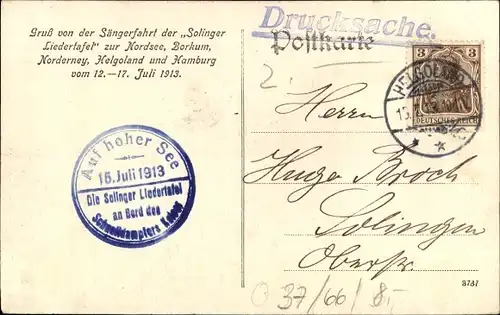 Gruß von der Sängerfahrt der „Solinger
Liedertafel" zur Nordsee, Borkum,
Norderney, Helgoland und Hamburg
vom 12.—17. Juli 1913.
Drucksache.
Postkarte
2.
3 3
DEUTSCHES REICH
HELGOLAND
15.7.13
Auf hoher See
15. Juli 1913
Die Solinger Liedertafel
an Bord des
Schnelldampfers
Herrn
Hugo Broch
Solingen
Oberstr.
37/66/8,-
3737